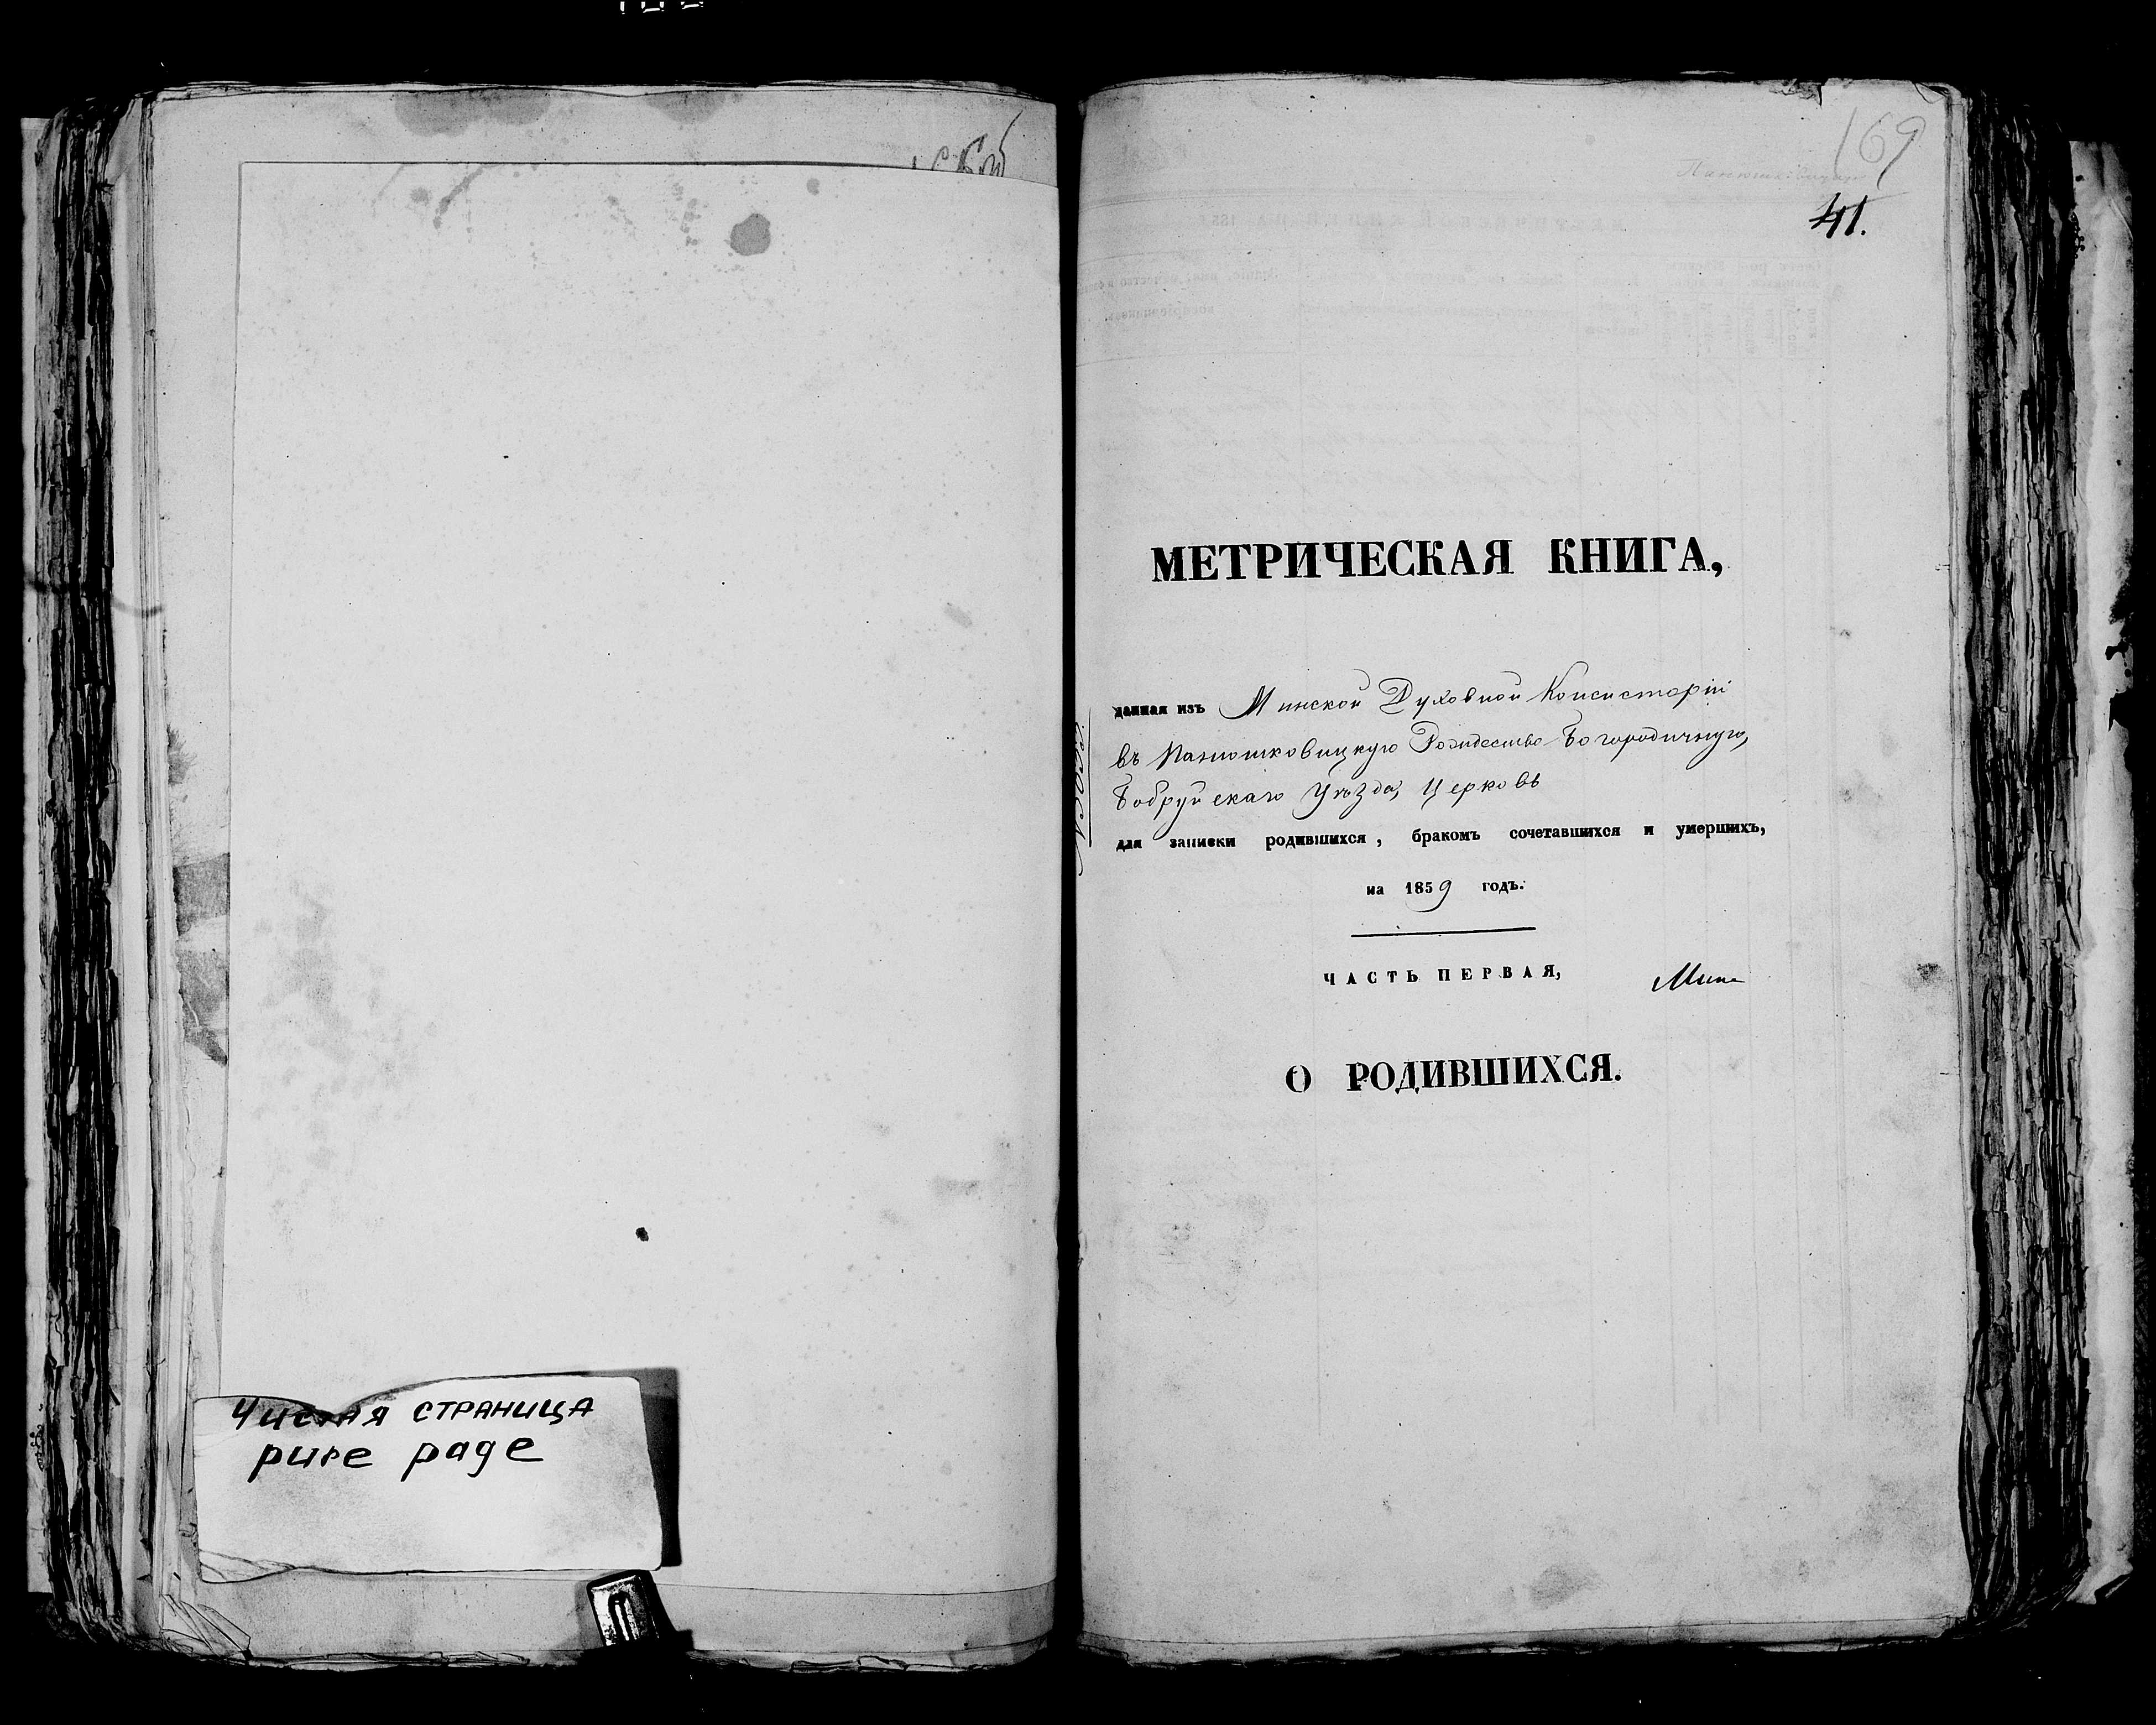 Чистая страница
pure page
169
41.
МЕТРИЧЕСКАЯ КНИГА,
данная изъ Минской Духовной Консисторіи
въ Панюшковицкую Рождество-Богородичную,
Бобруйскаго Уѣзда, Церковь
для записки родившихся, бракомъ сочетавшихся и умершихъ,
на 1859 годъ.
ЧАСТЬ ПЕРВАЯ,
О РОДИВШИХСЯ.